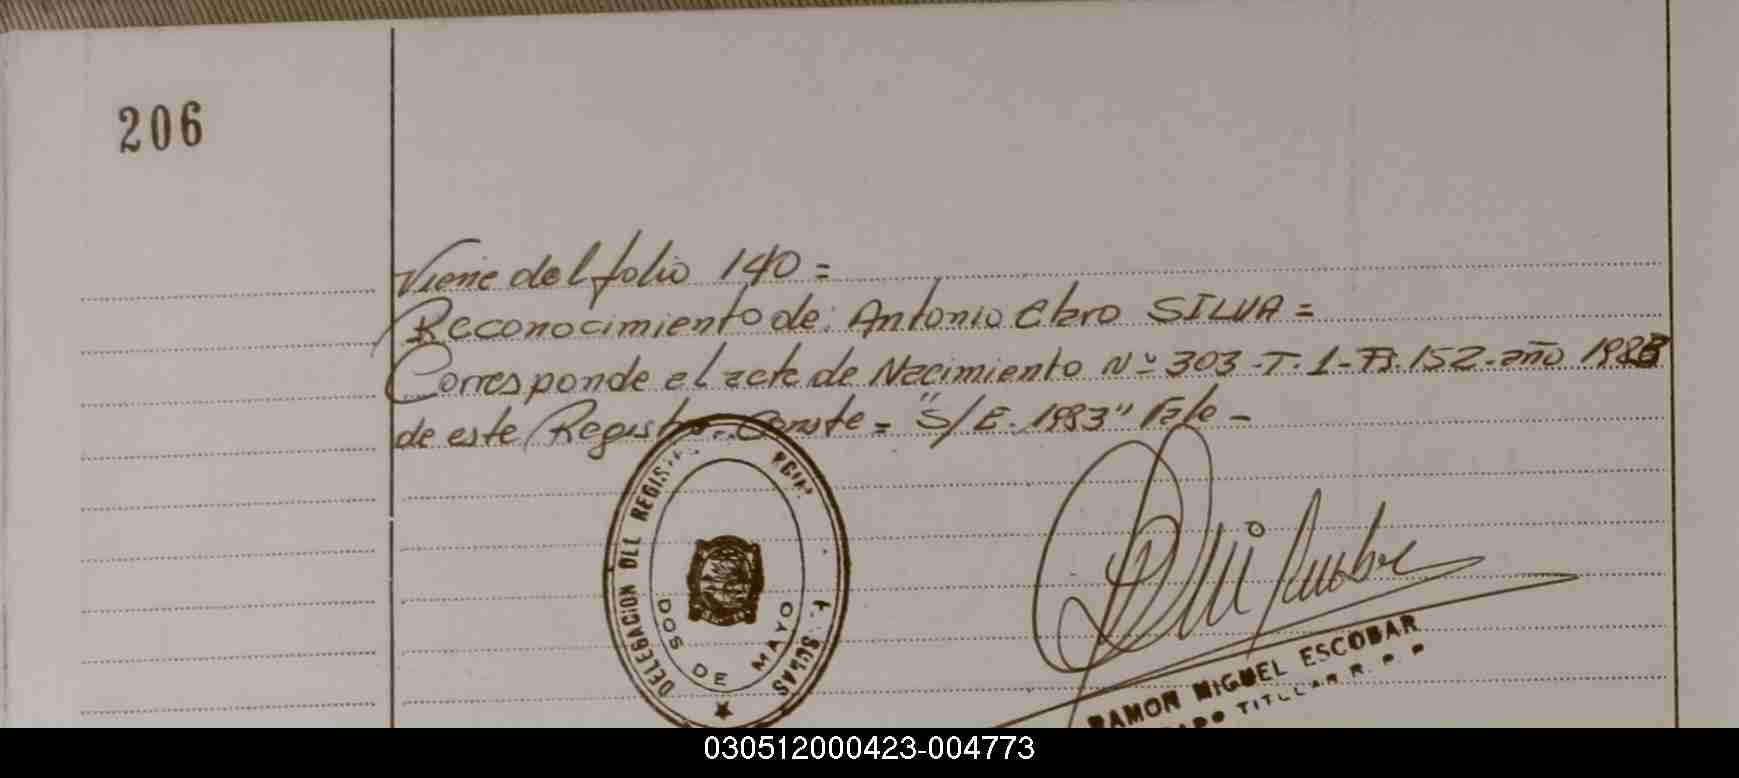 206
Viene del folio 140 =
Reconocimiento de: Antonio Claro SILVA =
Corresponde al acta de Nacimiento Nº 303-T.1-Fs.152-año 1983
de este Registro. Conste = "S/E. 1983" Vale -
DELEGACION DEL REGIS
DOS DE MAYO
RAMON MIGUEL ESCOBAR
TITULAR R. P. P
030512000423-004773